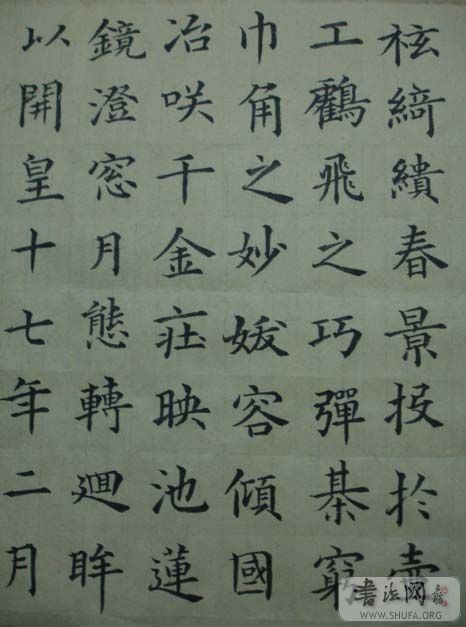 袨綺繢春景投於壺
工鸛飛之巧彈棊窮
巾角之妙容傾國
冶咲千金庄映池蓮
鏡澄窓月態轉廻眸
以開皇十七年二月
書法网
WWW.SHUFA.ORG